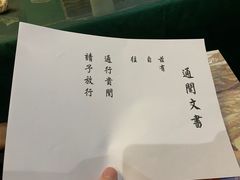 通關文書
茲有
自
往
通行貴關
請予放行